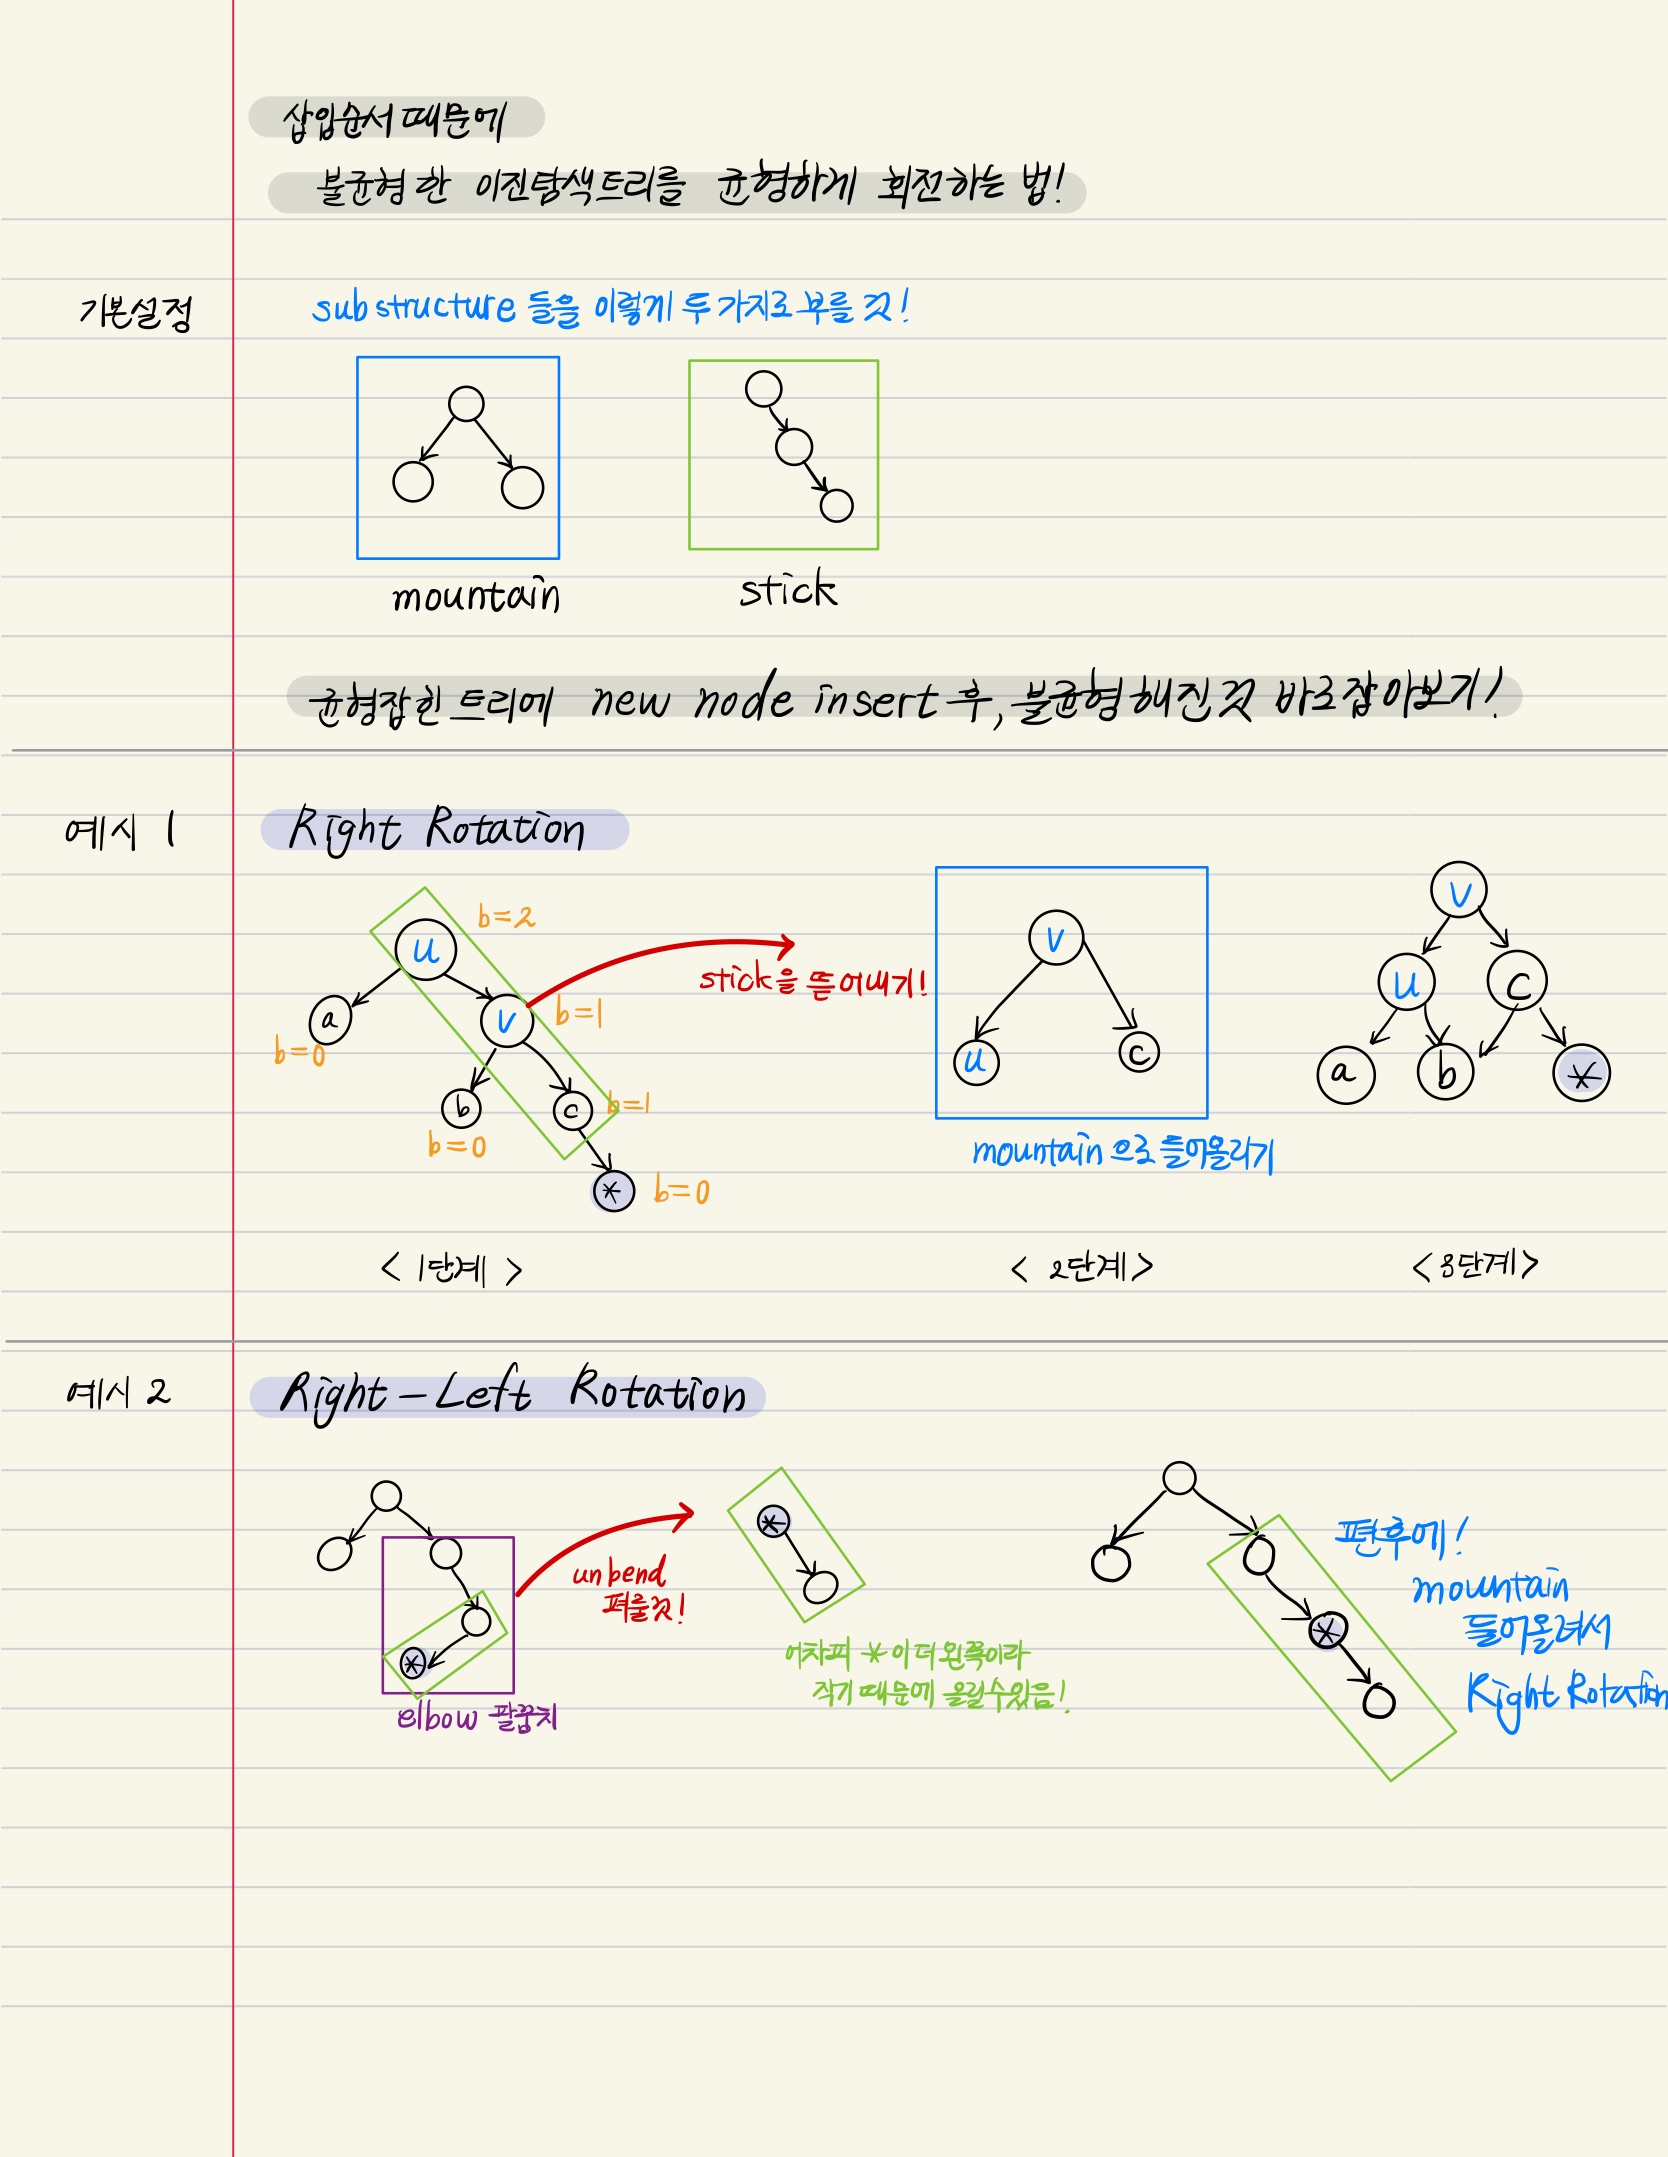 삽입순서 때문에
불균형한 이진탐색트리를 균형하게 회전하는 법!
기본설정
substructure 들을 이렇게 두 가지로 부를 것!
mountain
stick
균형잡힌 트리에 new node insert 후, 불균형해진것 바로잡아보기!
예시 1
Right Rotation
u
b=2
a
b=0
v
b=1
b
b=0
c
b=1
*
b=0
stick을 뜯어내기!
v
u
c
mountain 으로 들어올리기
v
u
c
a
b
*
< 1단계 >
< 2단계 >
< 3단계 >
예시 2
Right - Left Rotation
*
elbow 팔꿈치
unbend
펴줄것!
*
어차피 * 이 더 왼쪽이라
작기 때문에 올릴수있음!
*
편후에!
mountain
들어올려서
Right Rotation